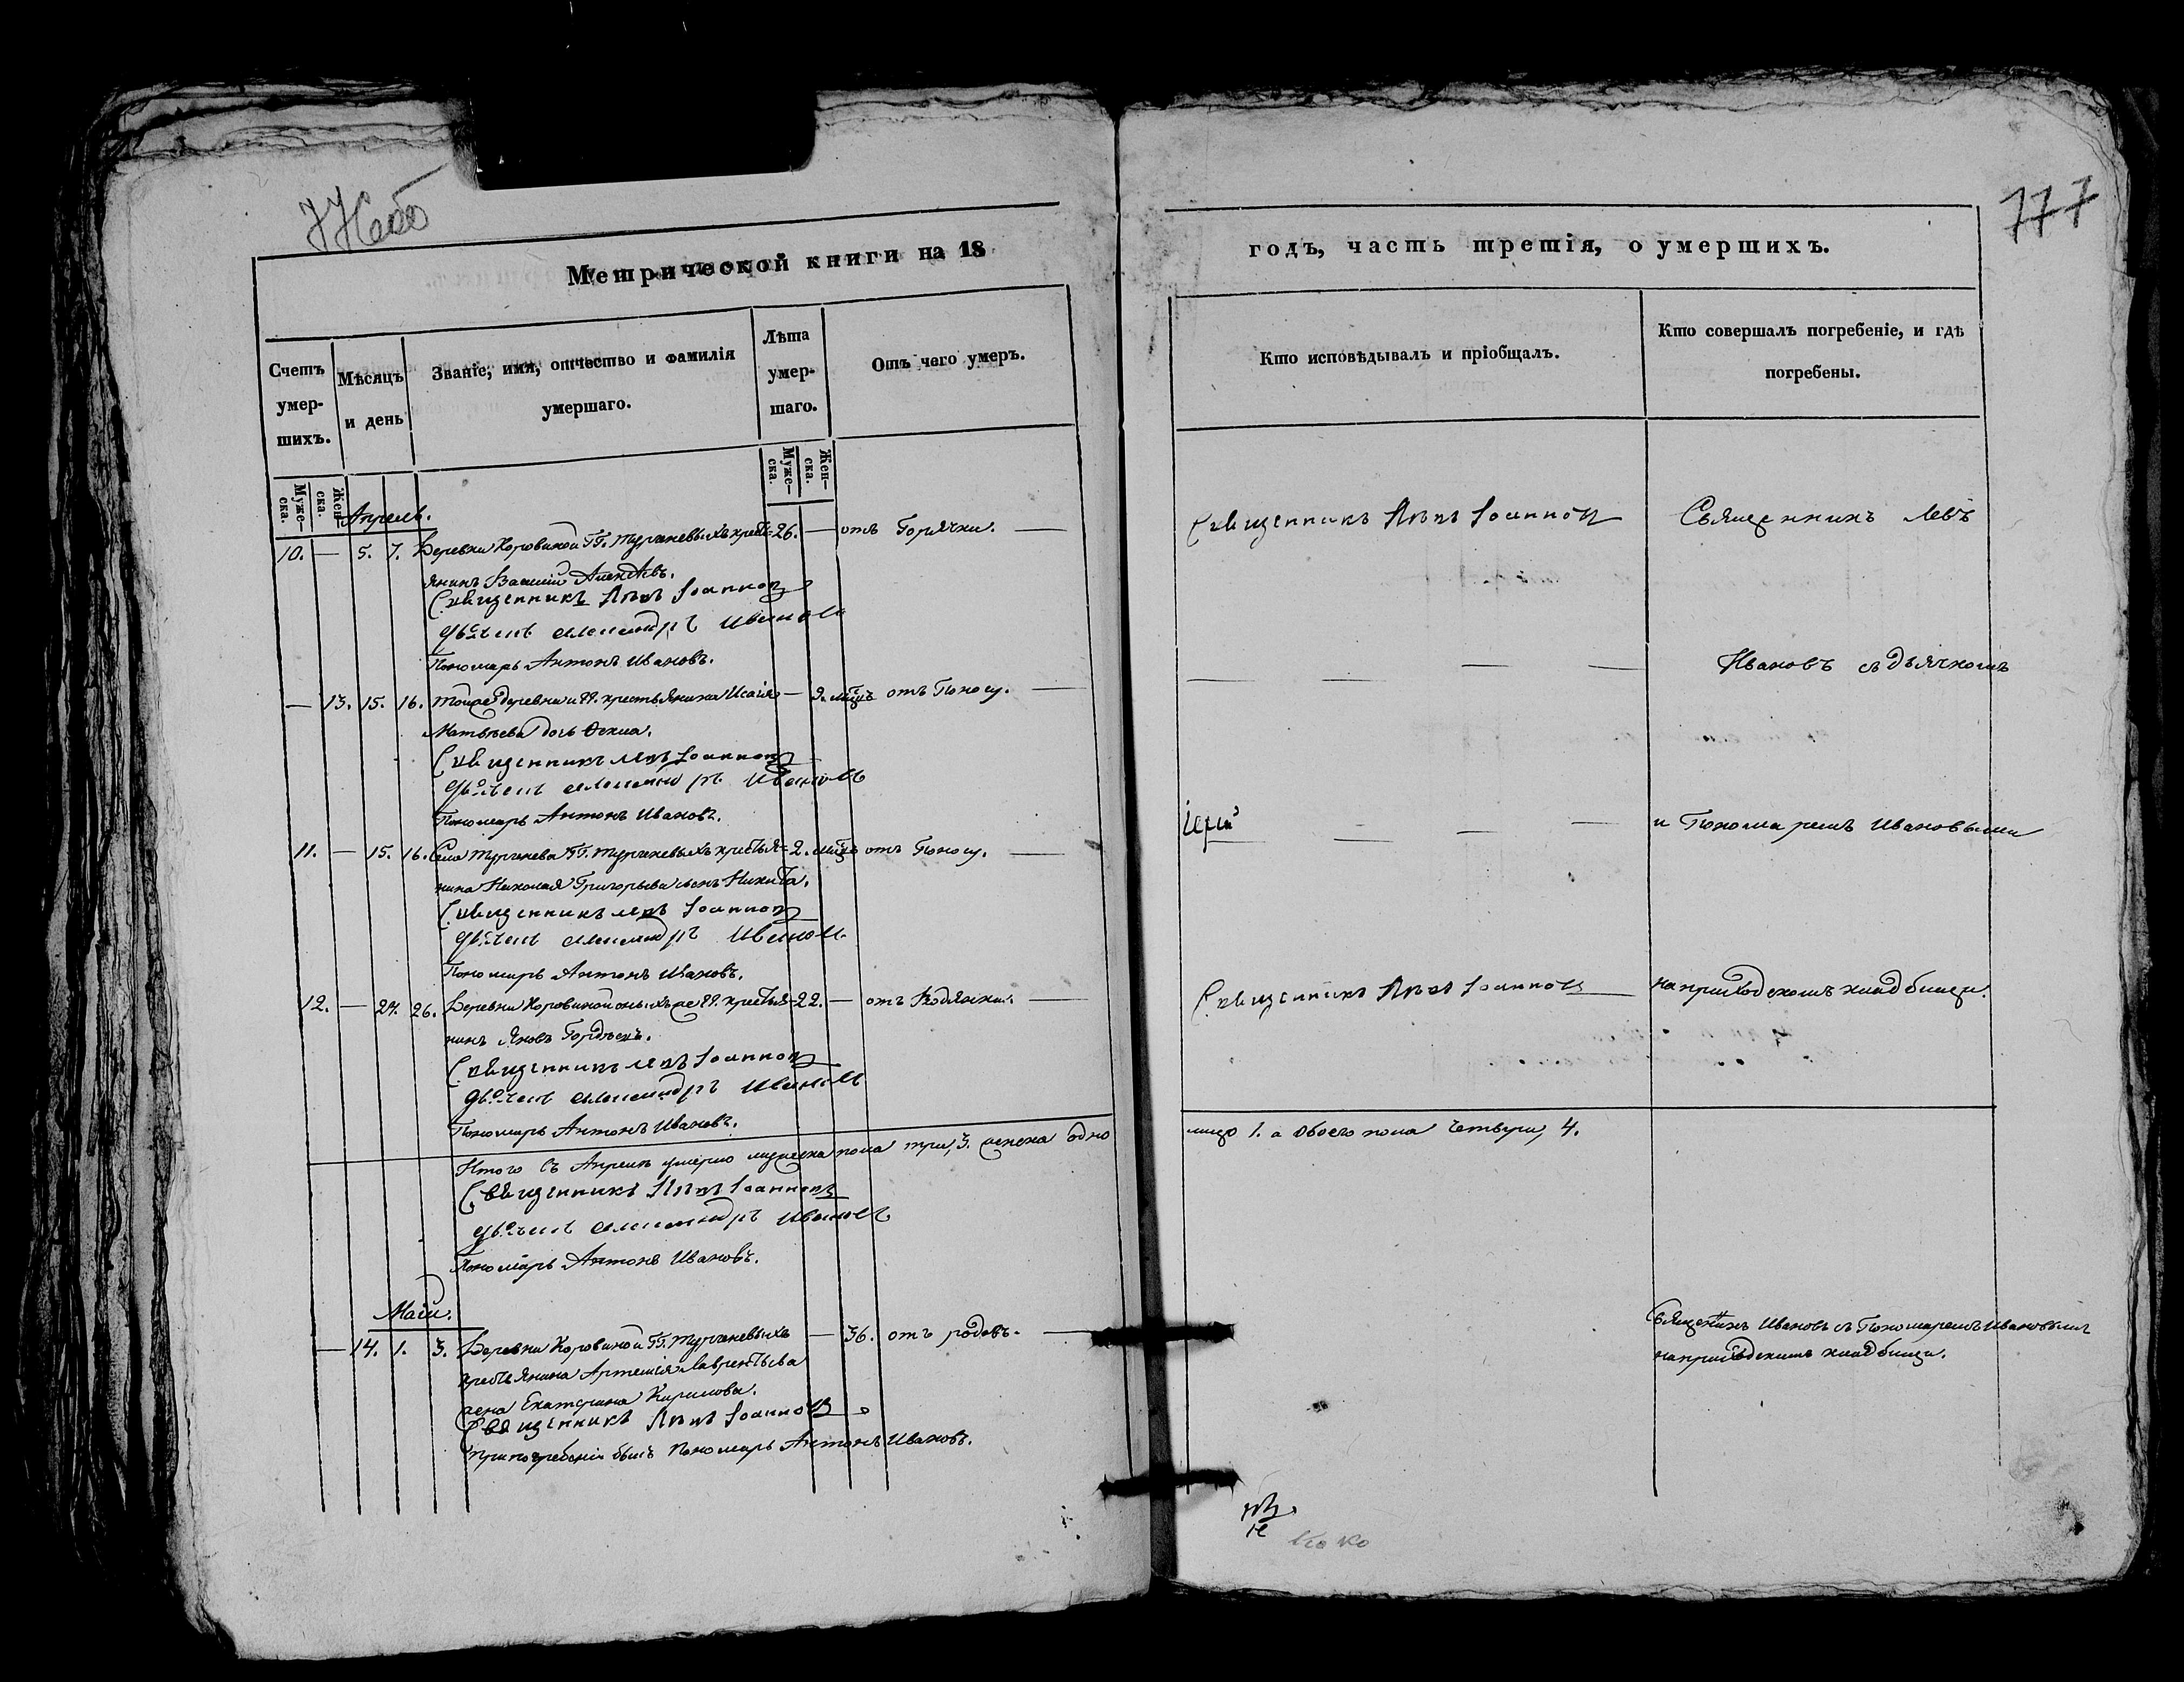 777
Метрической книги на 18
годъ, часть третія, о умершихъ.
Счетъ умер-шихъ.
Мѣсяцъ и день
Званіе, имя, отчество и фамилія умершаго.
Лѣта умер-шаго.
Отъ чего умеръ.
Кто исповѣдывалъ и пріобщалъ.
Кто совершалъ погребеніе, и гдѣ погребены.
Муже-ска.
Жен-ска.
Муже-ска.
Жен-ска.
Апрель.
10. — 5. 7. Деревни Коровиной ГГ. Тургеневыхъ кресть= 26. — отъ Горячки. —
янинъ Василій Алексѣевъ.
Священникъ Левъ Іоанновъ
Александръ Ивановъ
Пономарь Антонъ Ивановъ.
— 13. 15. 16. Тойже деревни и гг. крестьянина Исаія — 9. мѣцъ отъ Поносу. —
Матвѣева дочь Ѳекла.
Священникъ Левъ Іоанновъ
Александръ Ивановъ
Пономарь Антонъ Ивановъ.
11. — 15. 16. Села Тургенева ГГ. Тургеневыхъ крестья= 2. мѣцъ отъ Поносу. —
нина Николая Григорьева сынъ Никита.
Священникъ Левъ Іоанновъ
Александръ Ивановъ
Пономарь Антонъ Ивановъ.
12. — 24. 26. Деревни Коровиной оныхъже гг. крестья= 22. — отъ Водянки. —
нинъ Яковъ Гордѣевъ.
Священникъ Левъ Іоанновъ
Александръ Ивановъ
Пономарь Антонъ Ивановъ.
Итого въ Апрелѣ умерло мужеска пола три, 3. женска одно
Священникъ Левъ Іоанновъ
Александръ Ивановъ
Пономарь Антонъ Ивановъ.
Маій.
— 14. 1. 3. Деревни Коровиной ГГ. Тургеневыхъ — 36. отъ родовъ. —
крестьянина Артемія Лаврентьева
жена Екатерина Кирилова.
Священникъ Левъ Іоанновъ
При погребеніи былъ Пономарь Антонъ Ивановъ.
Священникъ Левъ Іоанновъ
Священникъ Левъ
Ивановъ съ дьячкомъ
Іерей
и Пономаремъ Ивановыми
Священникъ Левъ Іоанновъ
на приходскомъ кладбищи.
лицо 1. а обоего пола четыри, 4.
Священникъ Ивановъ съ Пономаремъ Ивановымъ
на приходскомъ кладбищи.